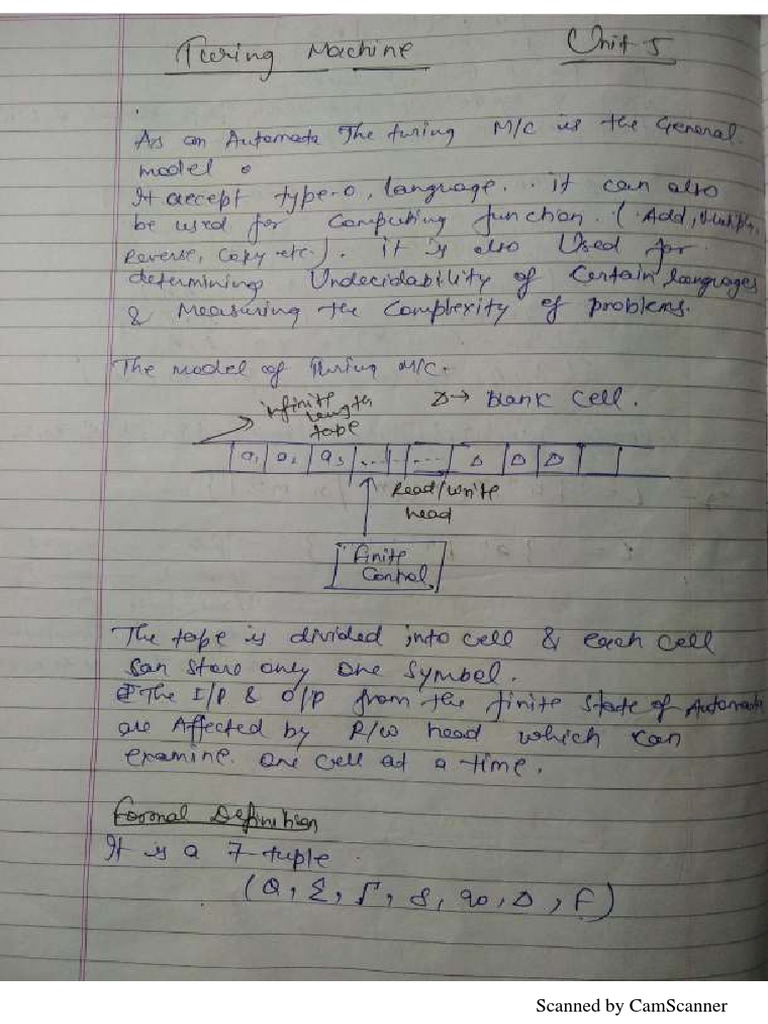 Turing Machine Unit-5
As an Automata The turing M/C is the General
model.
It accept type-0, language. it can also
be used for Computing function. (Add, Multiply,
reverse, Copy etc.). it is also Used for
determining Undecidability of Certain languages
& Measuring the Complexity of problems.
The model of Turing M/C.
infinite length tape
Δ → blank cell.
a1 a2 a3 ... ... Δ Δ Δ
Read/write
head
finite
Control
The tape is divided into cell & each cell
can store only one symbol.
The I/P & O/P from the finite state of Automata
are Affected by R/w head which can
examine one cell at a time.
Formal Definition
It is a 7-tuple
(Q, Σ, Γ, δ, q0, Δ, F)
Scanned by CamScanner